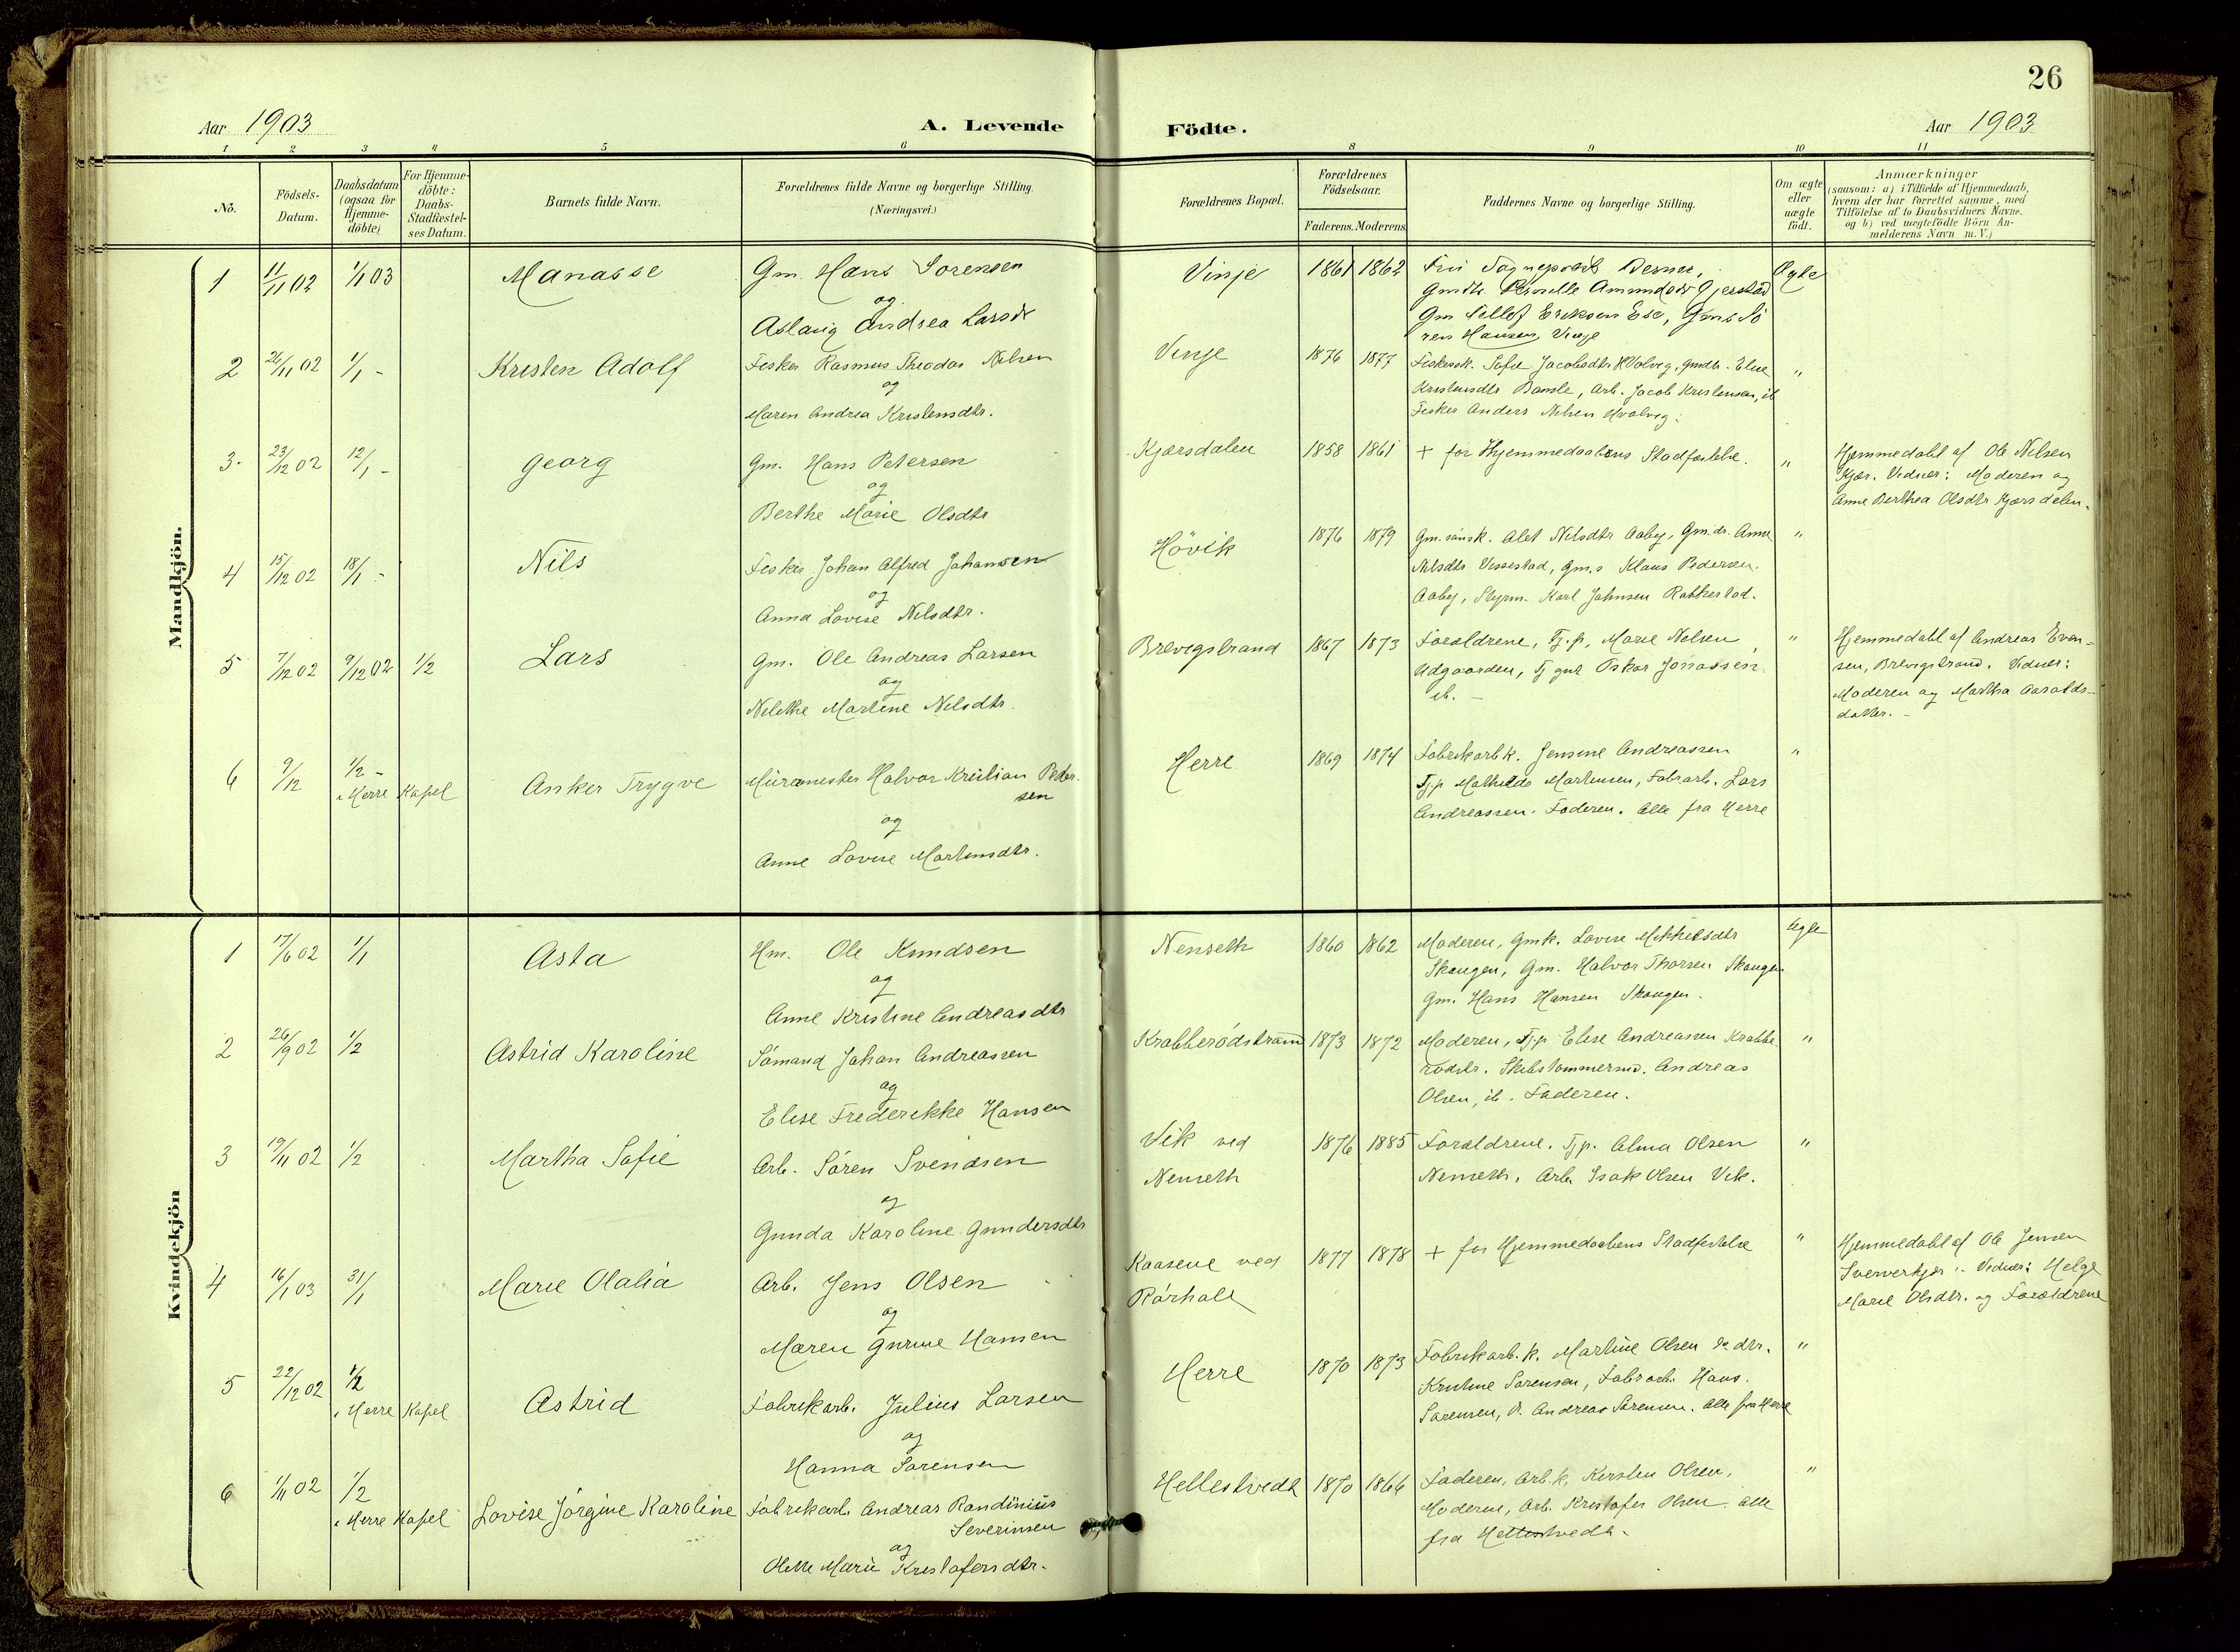 26
Aar 1903
A. Levende
Födte.
Aar 1903
1 2 3 4 5 6 8 9 10 11
No.
Födsels-
Datum.
Daabsdatum
(ogsaa for
Hjemme-
döbte)
For Hjemme-
döbte:
Daabs-
Stadfæstel-
ses Datum.
Barnets fulde Navn.
Forældrenes fulde Navne og borgerlige Stilling.
(Næringsvei.)
Forældrenes Bopæl.
Forældrenes
Födselsaar.
Faderens. Moderens.
Faddernes Navne og borgerlige Stilling.
Om ægte
eller
uægte
födt.
Anmærkninger
(saasom: a) i Tilfælde af Hjemmedaab,
hvem der har forrettet samme, med
Tilföielse af to Daabsvidners Navne.
og b) ved uægtefödte Börn An-
melderens Navn m. V.)
Mandkjön.
1 11/11 02 1/1 03 Manasse
Gm. Hans Sorensen
og
Aslaug Andrea Larsdr
Vinje 1861 1862
Gm Tellef Eriksen
ren Hansen Vinje
Ægte
2 26/11 02 1/1 - Kristen Adolf
Fisker Rasmus Theodor Nilsen
og
Maren Andrea Kristensdtr.
Vinje 1876 1877
Fiskersk. Sofie Jacobsdtr Hvalvig, Gmdtr. Elise
Kristensdtr Bamle, Arb. Jacob Kristensen, ib
Fisker Anders Nilsen Hvalvig.
"
3. 23/12 02 12/1 - Georg
Gm. Hans Petersen
og
Berthe Marie Olsdtr
Kjærsdalen 1858 1861
+ for Hjemmedaabens Stadfæstelse.
"
Hjemmedøbt af Ole Nilsen
Kjær. Vidner: Moderen og
Anne Berthea Olsdtr Kjærsdalen.
4 15/12 02 18/1 - Nils
Fisker Johan Alfred Johansen
og
Anna Lovise Nilsdtr.
Hövik 1876 1879
Gm.sönsk. Alet Nilsdtr Aaby, Gm.dr. Anne
Nilsdtr Vissestad, Gm.s Klaus Pedersen
Aaby, Styrm. Karl Johnsen Rakkestad.
"
5 7/12 02 9/12 02 1/2 Lars
Gm. Ole Andreas Larsen
og
Nilethe Martine Nilsdtr.
Brevigstrand 1867 1873
Forældrene, Tj.p. Marie Nilsen,
Udgaarden, Tj gut Oskar Jonassen
ib. -
"
Hjemmedøbt af Andreas Even-
sen, Brevigstrand. Vidner:
Moderen og Martha Aaralds-
datter. -
6 9/12 1/2 -
i Herre Kapel
Anker Trygve
Mürmester Halvor Kristian Peter-
sen
og
Anne Lovise Martinsdtr.
Herre 1869 1874
Fabrikarb k. Jensine Andreassen
Tj.p Mathilde Martinsen, Fabrarb. Lars
Andreassen. Faderen. Alle fra Herre
"
Kvindekjön
1 17/6 02 1/1 Asta
Hm. Ole Knudsen
og
Anne Kristine Andreasdtr
Nenseth 1860 1862
Moderen, Gmk. Lovise Mikkelsdtr
Skougen, Gm. Halvor Thorsen Skougen
Gm. Hans Hansen Skougen.
Ægte
2 26/9 02 1/2 Astrid Karoline
Sömand Johan Andreassen
og
Elise Frederikke Hansen
Krabberödstrand 1873 1872
Moderen, Tj.p. Elise Andreassen Krabbe
rödstr. Skibstømmermd. Andreas
Olsen, ib. Faderen.
"
3 19/11 02 1/2 Martha Sofie
Arb. Sören Svendsen
og
Gunda Karoline Gundersdtr
Vik ved
Nenseth
1876 1885
Forældrene. Tj.p. Alma Olsen
Nenseth. Arb. Isak Olsen Vik.
"
4 16/1 03 31/1 Marie Olalia
Arb. Jens Olsen
og
Maren Gurine Hansen
Kaasene ved
Rörholt
1877 1878
+ for Hjemmedaabens Stadfæstelse
"
Hjemmedøbt af Ole Jensen
Vidner: Helge
Marie Olsdtr. og Forældrene
5 22/12 02 1/2
i Herre Kapel
Astrid
Fabrikarb. Julius Larsen
og
Hanna Sörensen
Herre 1870 1873
Fabrikarb. k. Martine Olsen
Kristine Sørensen, Fabrarb. Hans
Sørensen, Andreas Sørensen. Alle fra Herre
"
6 1/11 02 1/2
i Herre Kapel
Lovise Jörgine Karoline
Fabrikarb. Andreas Randinius
Severinsen
og
Olette Marie Kristofersdtr.
Hellestvedt 1870 1866
Faderen, Arb. k. Kirsten Olsen,
Moderen, Arb. Kristofer Olsen, alle
fra Hellestvedt.
"